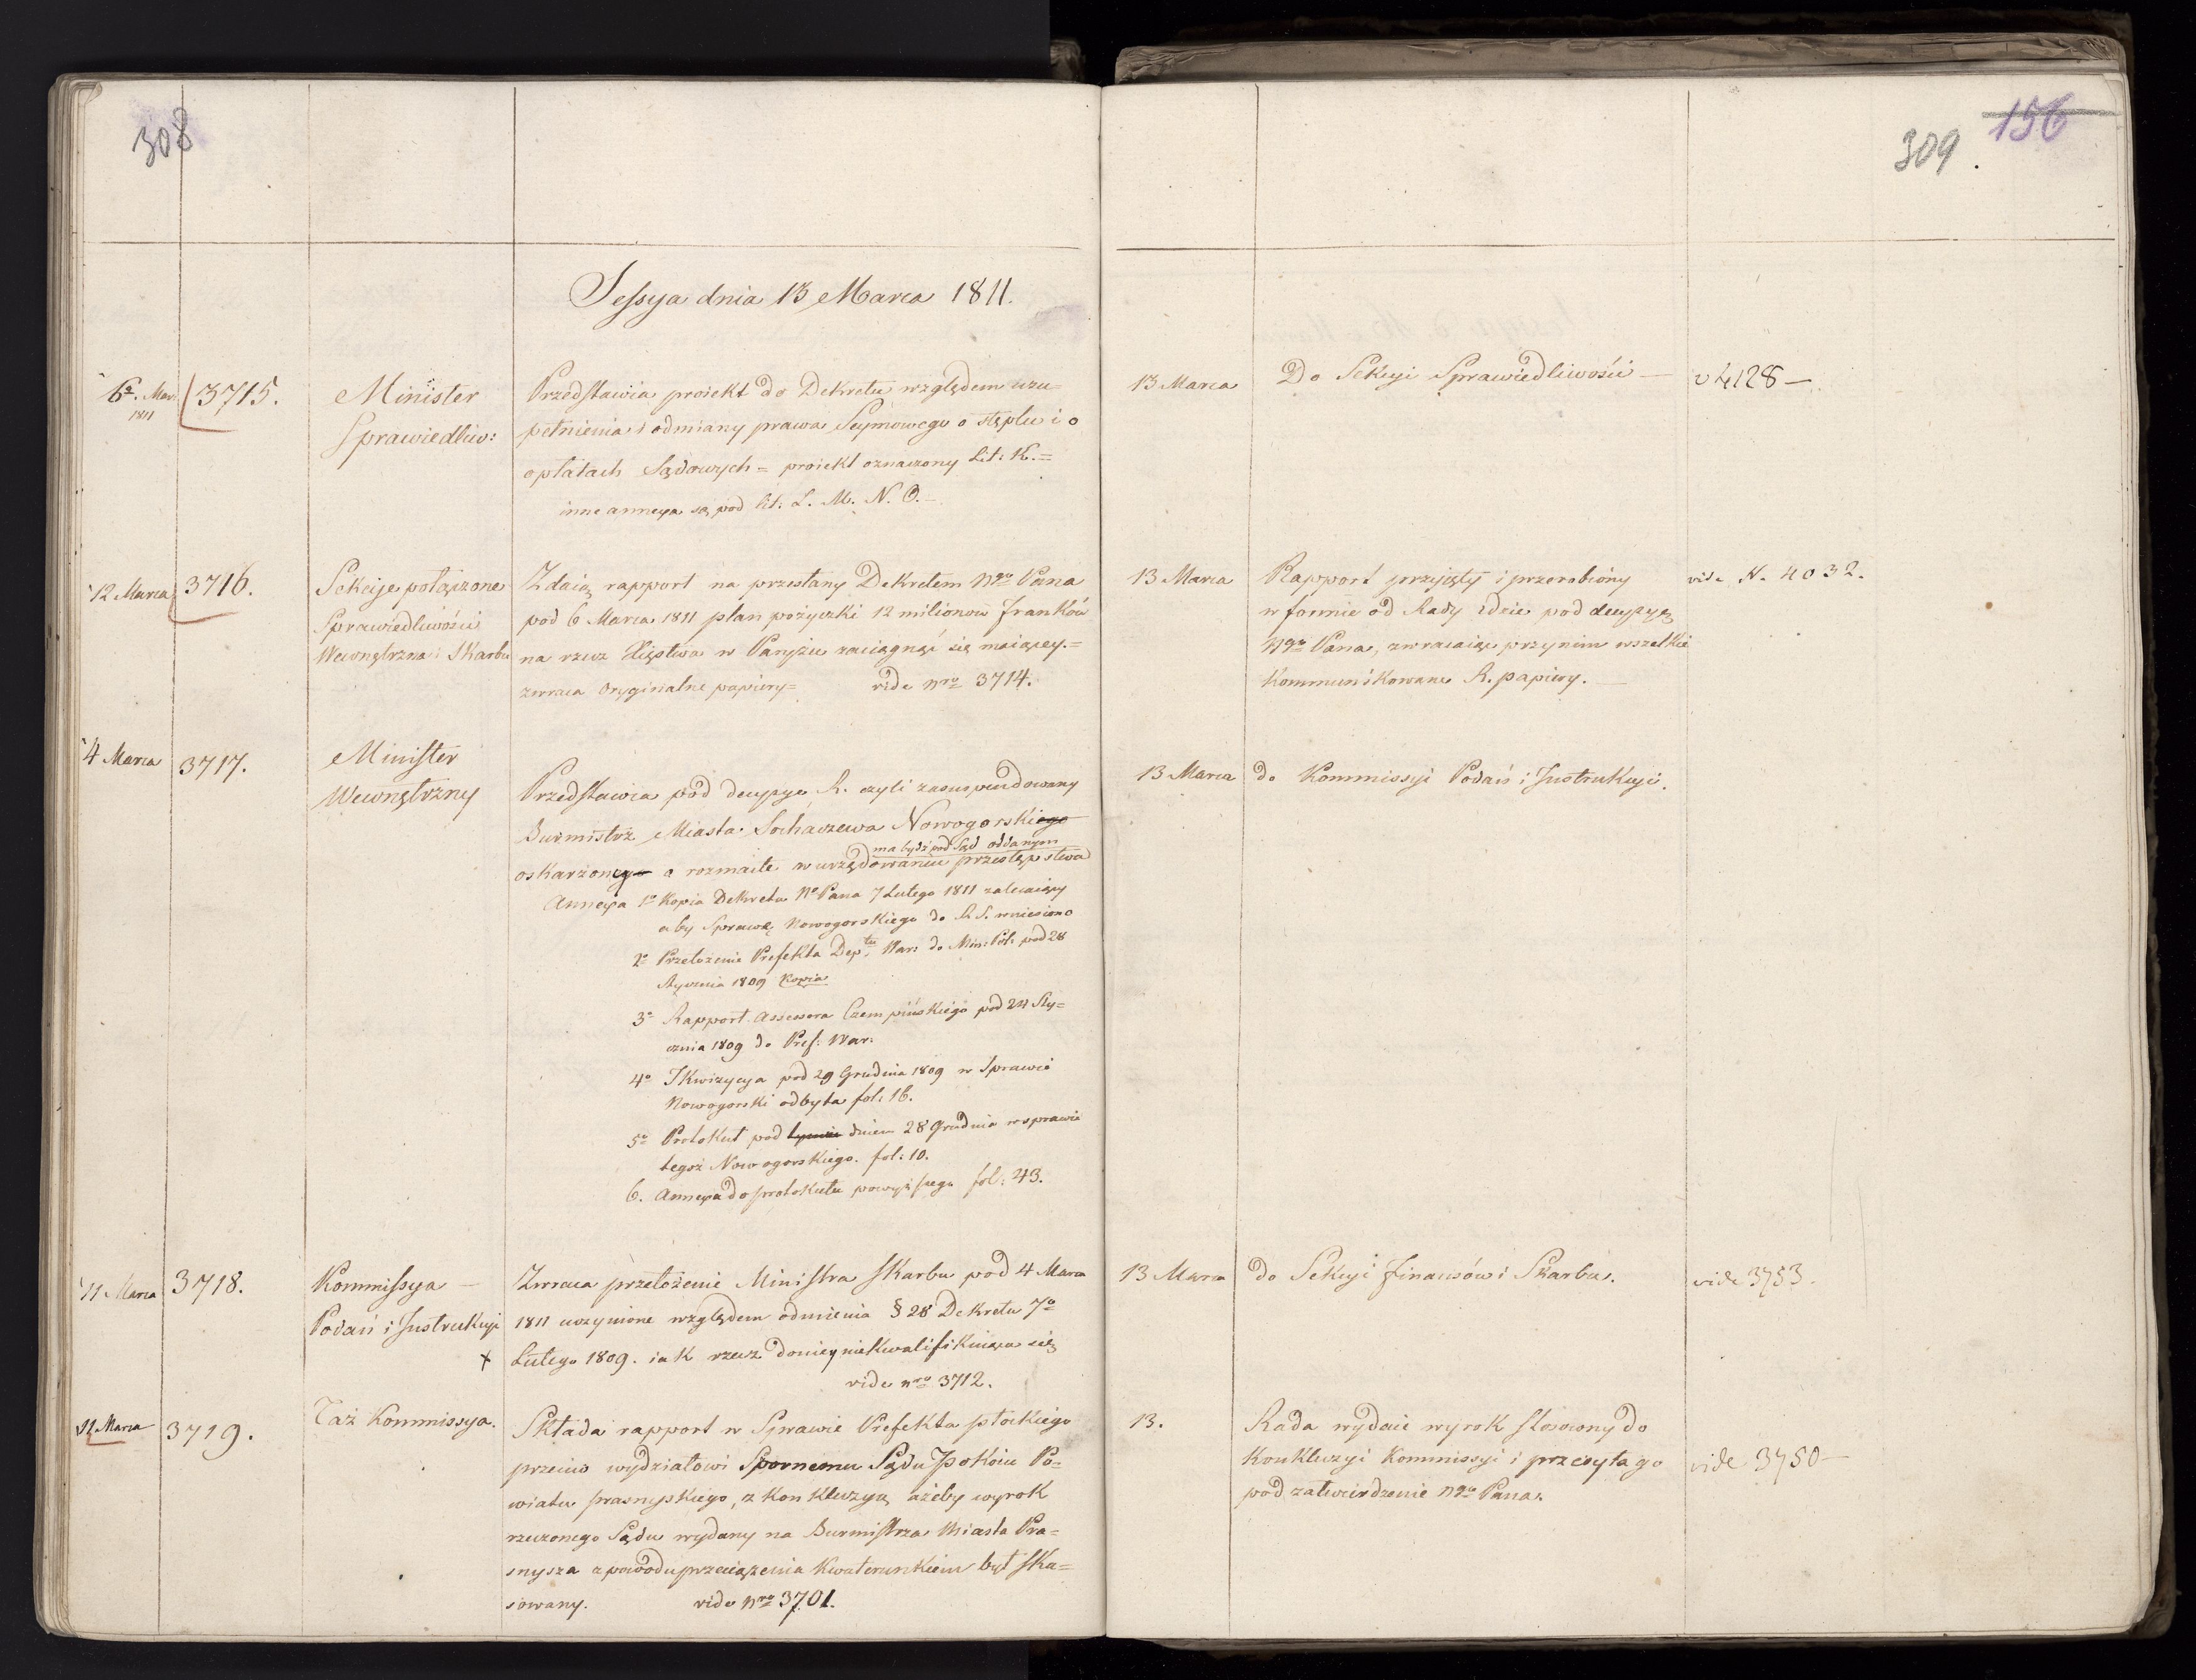 308
Sessya dnia 13 Marca 1811.
6º Mar: 1811
3715.
Minister
Sprawiedliw:
Przedstawia proiekt do Dekretu względem uzu-
pełnienia i odmiany prawa Seymowego o stęplu i o
opłatach Sądowych = proiekt oznaczony Lit: K. =
inne annexa są pod lit: L. M. N. O. -
12 Marca
3716.
Sekcije połączone
Sprawiedliwości
Wewnętrzna i Skarbu
Zdaią rapport na przesłany Dekretem Ngo Pana
pod 6 Marca 1811 plan pożyczki 12 milionów franków
na rzecz Xięstwa w Paryżu zaciągnąć się maiącey. =
zwraca oryginalne papiery = vide nro 3714.
4 Marca
3717.
Minister
Wewnętrzny
Przedstawia pod decyzye R. czyli zasuspendowany
Burmistrz Miasta Sochaczewa Nowogorskiego
ma bydź pod Sąd oddanym
oskarżonego o rozmaite w urzędowaniu przestępstwa
Annexa 1º Kopia Dekretu No Pana 7 Lutego 1811 zalecaiący
aby Sprawę Nowogorskiego do R. S. wniesiono
2º Przełożenie Prefekta Deptu War: do Min: Pol: pod 28
Stycznia 1809 Kopia
3º Rapport Assessora Czempińskiego pod 24 Sty=
cznia 1809 do Pref: War:
4º Ikwizycya pod 29 Grudnia 1809 w Sprawie
Nowogorski odbyta fol: 16.
5º Protokuł pod tymże dniem 28 Grudnia w sprawie
tegoż Nowogorskiego. fol: 10.
6. Annexa do protokułu powyższego fol: 43.
11 Marca
3718.
Kommissya -
Podań i Instrukcyi
x
Zwraca przełożenie Ministra Skarbu pod 4 Marca
1811 uczynione względem odmienia § 28 Dekretu 7º
Lutego 1809. iak rzecz doniey niekwalifikuiąca się
vide nro 3712.
11 Marca
3719.
Taż Kommissya.
Składa rapport w Sprawie Prefekta płockiego
przeciw wydziałowi Spornemu Sądu Pokoiu Po-
wiatu prasnyskiego, z konkluzyą ażeby wyrok
rzeczonego Sądu wydany na Burmistrza Miasta Pra=
snysza z powodu przeciążenia kwaterunkiem był ska=
sowany. vide nro 3701.
156
309.
13 Marca
Do Sekcyi Sprawiedliwości -
v 4128 -
13 Marca
Rapport przyięty i przerobiony
w formie od Rady idzie pod decyzyą
Ngo Pana, zwracaiąc przy nim wszelkie
kommunikowane R. papiery. -
vide N. 4032.
13 Marca
do Kommissyi Podań i Instrukcyi.
13 Marca
do Sekcyi finansów i Skarbu.
vide 3753.
13.
Rada wydaie wyrok stosowny do
konkluzyi Kommissyi i przesyła go
pod zatwierdzenie Ngo Pana.
vide 3750 -